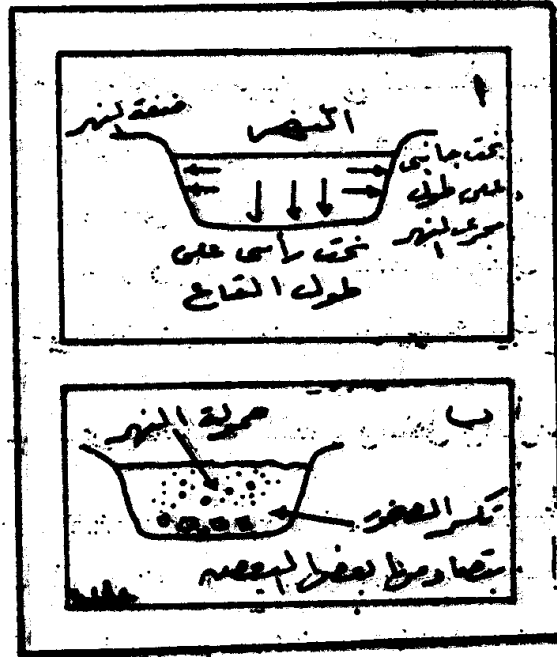 أ
ضفة النهر
النهر
نحت جانبى
على طول
مجرى النهر
نحت رأسى على
طول القاع
ب
حمولة النهر
تكسر الصخور
بتصادمها بعضها البعض